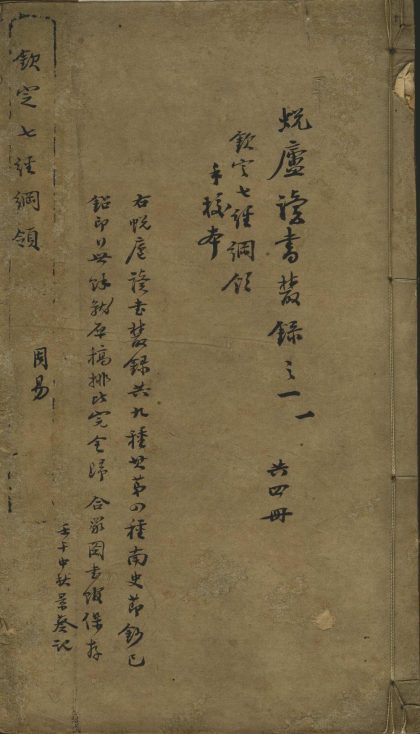 悅廬讀書叢錄之一一 共四冊
欽定七經綱領
手校本
右悅廬讀書叢錄共九種其第四種南史節鈔已
鉛印 餘就原稿排比完全歸 合眾圖書館保存
壬午中秋景葵記
周易
欽定七經綱領